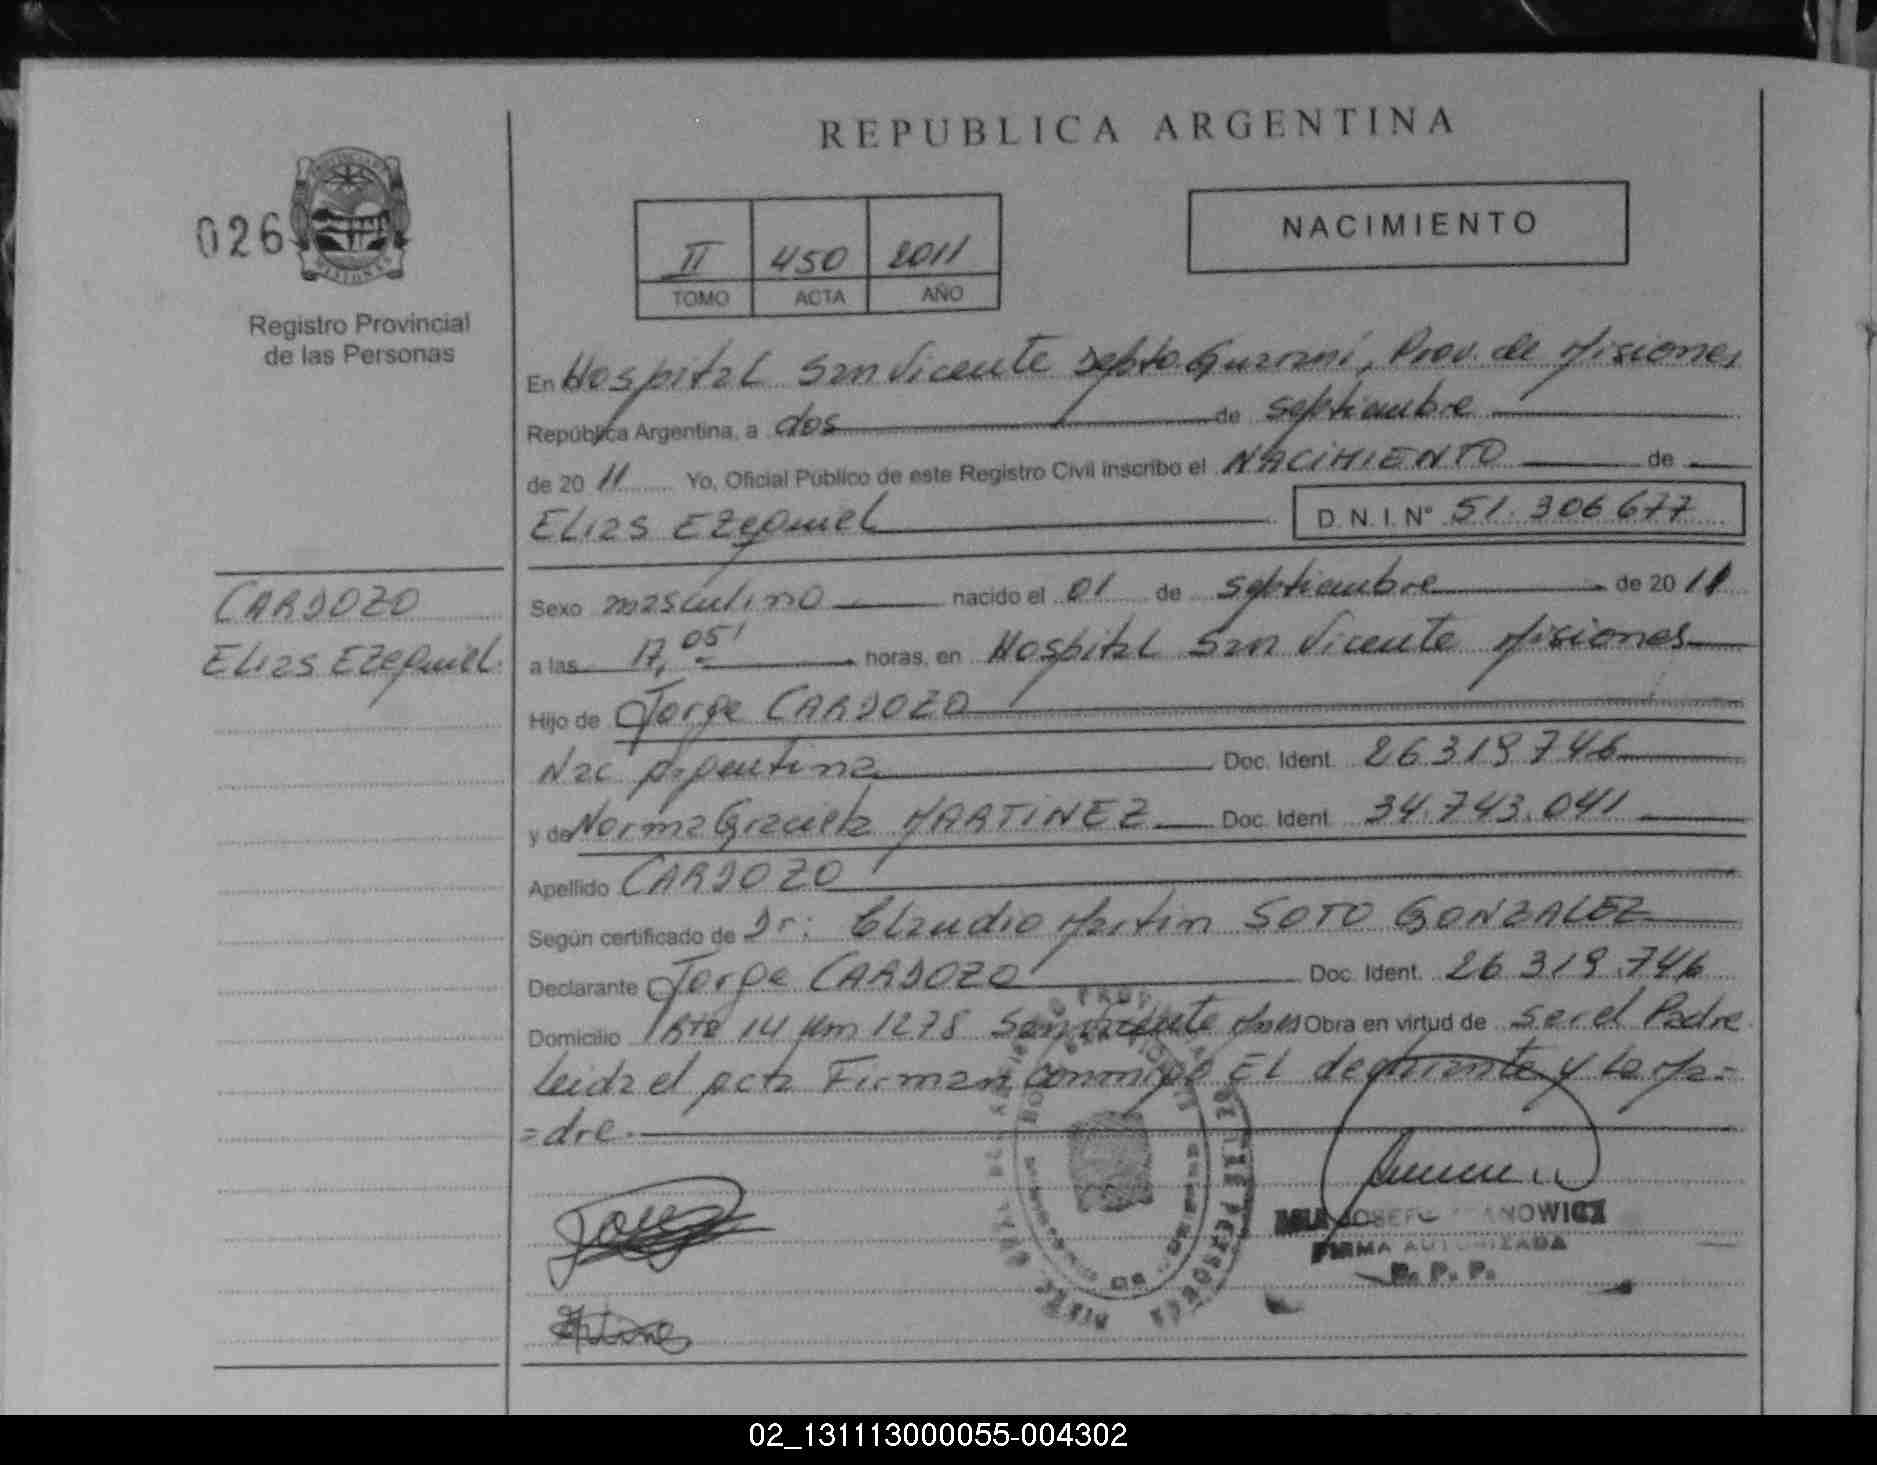 REPUBLICA ARGENTINA
026
Registro Provincial
de las Personas
II 450 2011
TOMO ACTA AÑO
NACIMIENTO
En Hospital San Vicente Depto Guarani, Prov. de Misiones
República Argentina, a dos de septiembre
de 20 11 Yo, Oficial Público de este Registro Civil inscribo el NACIMIENTO de
ELias EZequieL D.N.I. N° 51.306.677
CARDOZO
ELias EZequieL.
Sexo masculino nacido el 01 de septiembre de 20 11
a las 17,05' horas, en Hospital San Vicente Misiones
Hijo de Jorge CARDOZO
Nac Argentina Doc. Ident. 26.319.746
y de Norma Graciela MARTINEZ Doc. Ident. 34.743.041
Apellido CARDOZO
Según certificado de Dr: Claudio Martin SOTO GONZALEZ
Declarante Jorge CARDOZO Doc. Ident. 26.319.746
Domicilio Rta 14 Km 1278 San Vicente Mnes Obra en virtud de ser el Padre
leida el acta Firman conmigo EL declarante y La Ma=
=dre.
FIRMA AUTORIZADA
R. P. P.
02_131113000055-004302